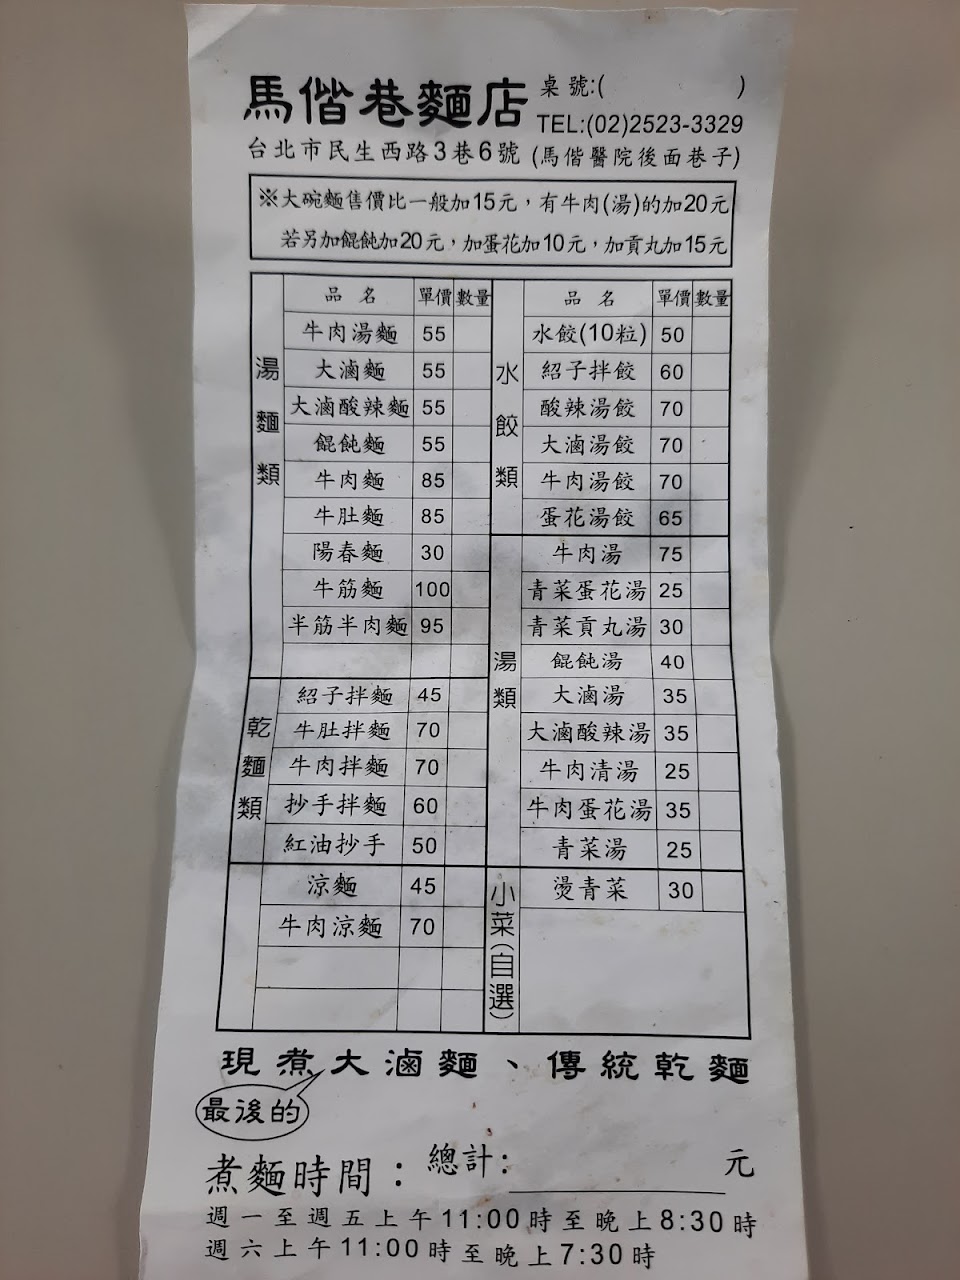 馬偕巷麵店
桌號:( )
TEL:(02)2523-3329
台北市民生西路3巷6號 (馬偕醫院後面巷子)
※大碗麵售價比一般加15元，有牛肉(湯)的加20元
若另加餛飩加20元，加蛋花加10元，加貢丸加15元
湯麵類
品名 單價 數量
牛肉湯麵 55
大滷麵 55
大滷酸辣麵 55
餛飩麵 55
牛肉麵 85
牛肚麵 85
陽春麵 30
牛筋麵 100
半筋半肉麵 95
乾麵類
紹子拌麵 45
牛肚拌麵 70
牛肉拌麵 70
抄手拌麵 60
紅油抄手 50
涼麵 45
牛肉涼麵 70
水餃類
品名 單價 數量
水餃(10粒) 50
紹子拌餃 60
酸辣湯餃 70
大滷湯餃 70
牛肉湯餃 70
蛋花湯餃 65
湯類
牛肉湯 75
青菜蛋花湯 25
青菜貢丸湯 30
餛飩湯 40
大滷湯 35
大滷酸辣湯 35
牛肉清湯 25
牛肉蛋花湯 35
青菜湯 25
小菜(自選)
燙青菜 30
現煮大滷麵、傳統乾麵
最後的
煮麵時間：
總計: 元
週一至週五上午11:00時至晚上8:30時
週六上午11:00時至晚上7:30時